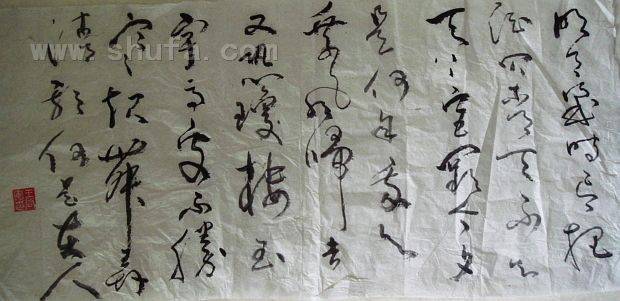 明月幾時有把
酒问青天不知
天上宫阙今夕
是何年我欲
乘风歸去
又恐瓊樓玉
宇高處不勝
寒起舞弄
清影何似在人
www.shufa.com